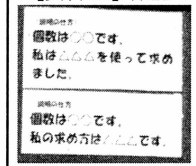 説明の仕方
個数は○○です。
私は△△△を使って求め
ました。
説明の仕方
個数は○○です。
私の求め方は△△△です。